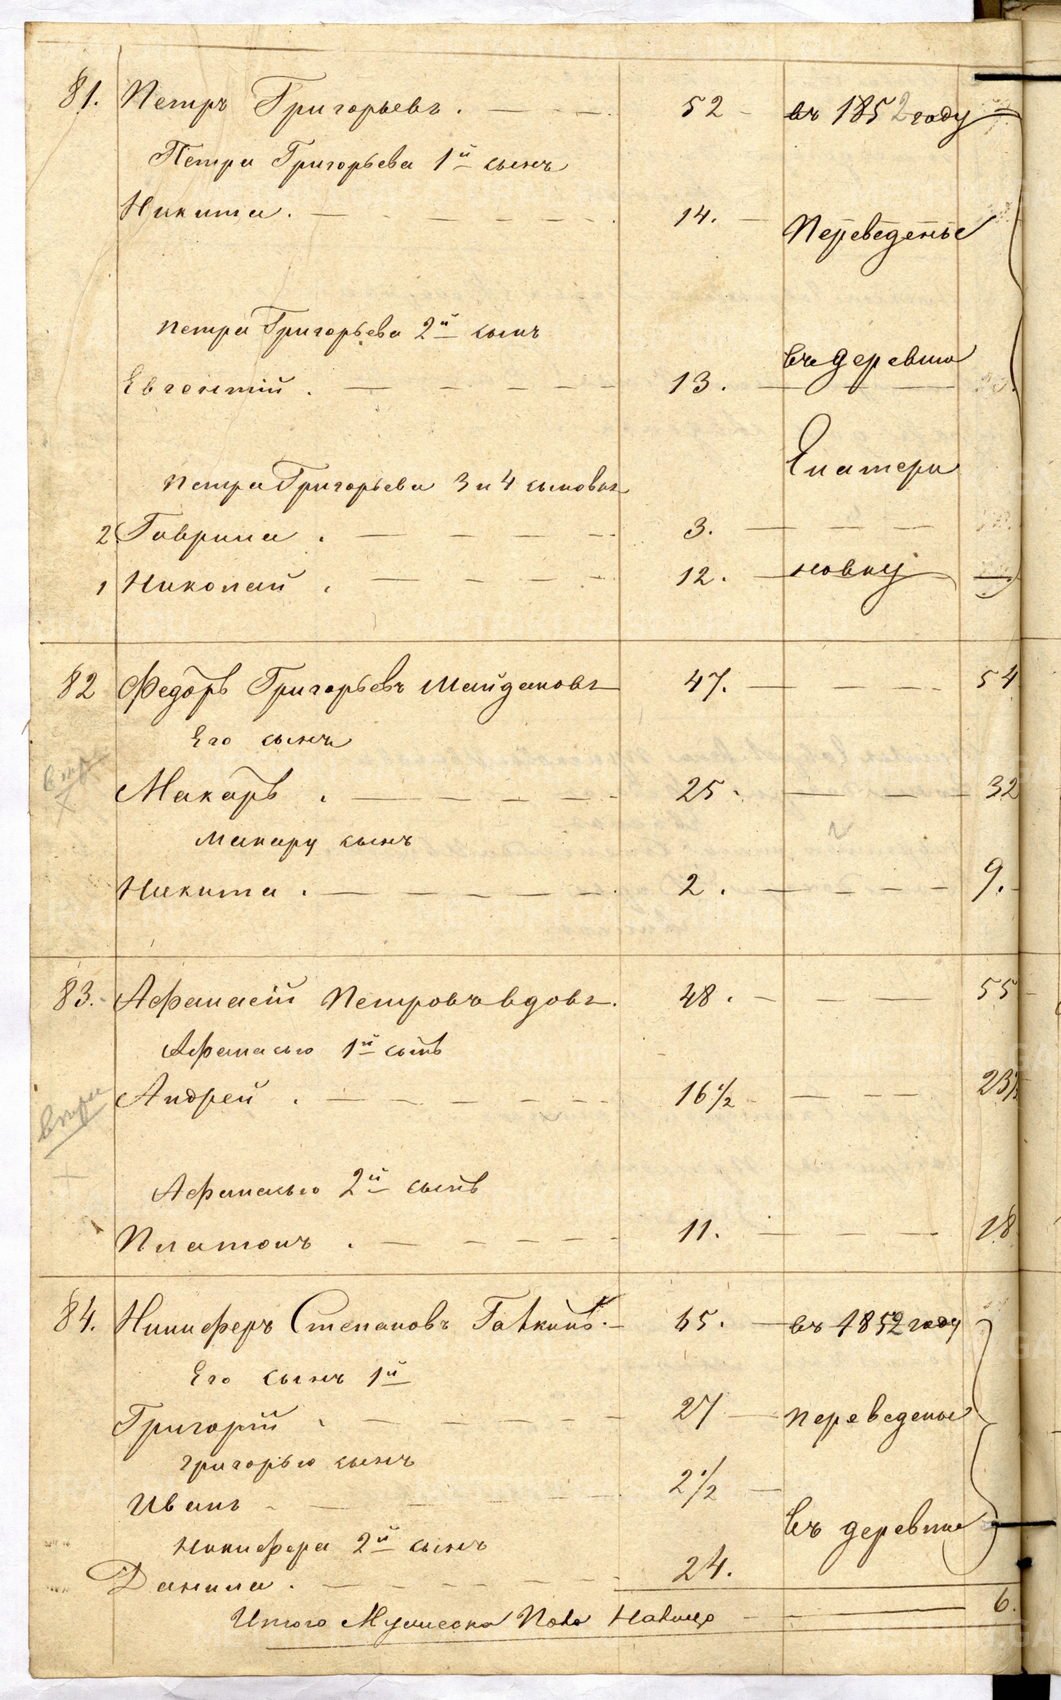 81. Петръ Григорьевъ. 52 въ 1852 году
Петра Григорьева 1й сынъ
Никита. 14. Переведены
Петра Григорьева 2й сынъ
въ деревню
Евгентій. 13.
Екатери
Петра Григорьева 3 и 4 сыновья
2 Гаврила. 3.
1 Николай. 12. новку
82 Федоръ Григорьевъ Майдановъ 47. 54
Его сынъ
Макаръ. 25. 32
Макару сынъ
Никита. 2. 9.
83. Афанасій Петровъ вдовъ. 48. 55
Афанасью 1й сынъ
Андрей. 16 1/2 23 1/2
Афанасью 2й сынъ
Платонъ. 11. 18
84. Никиферъ Степановъ 45. въ 1852 году
Его сынъ 1й
Григорій 27 переведены
Григорью сынъ
Иванъ 2 1/2
въ деревню
Никифера 2й сынъ
Данила. 24.
Итого Мужеска Пола Налицо 6.